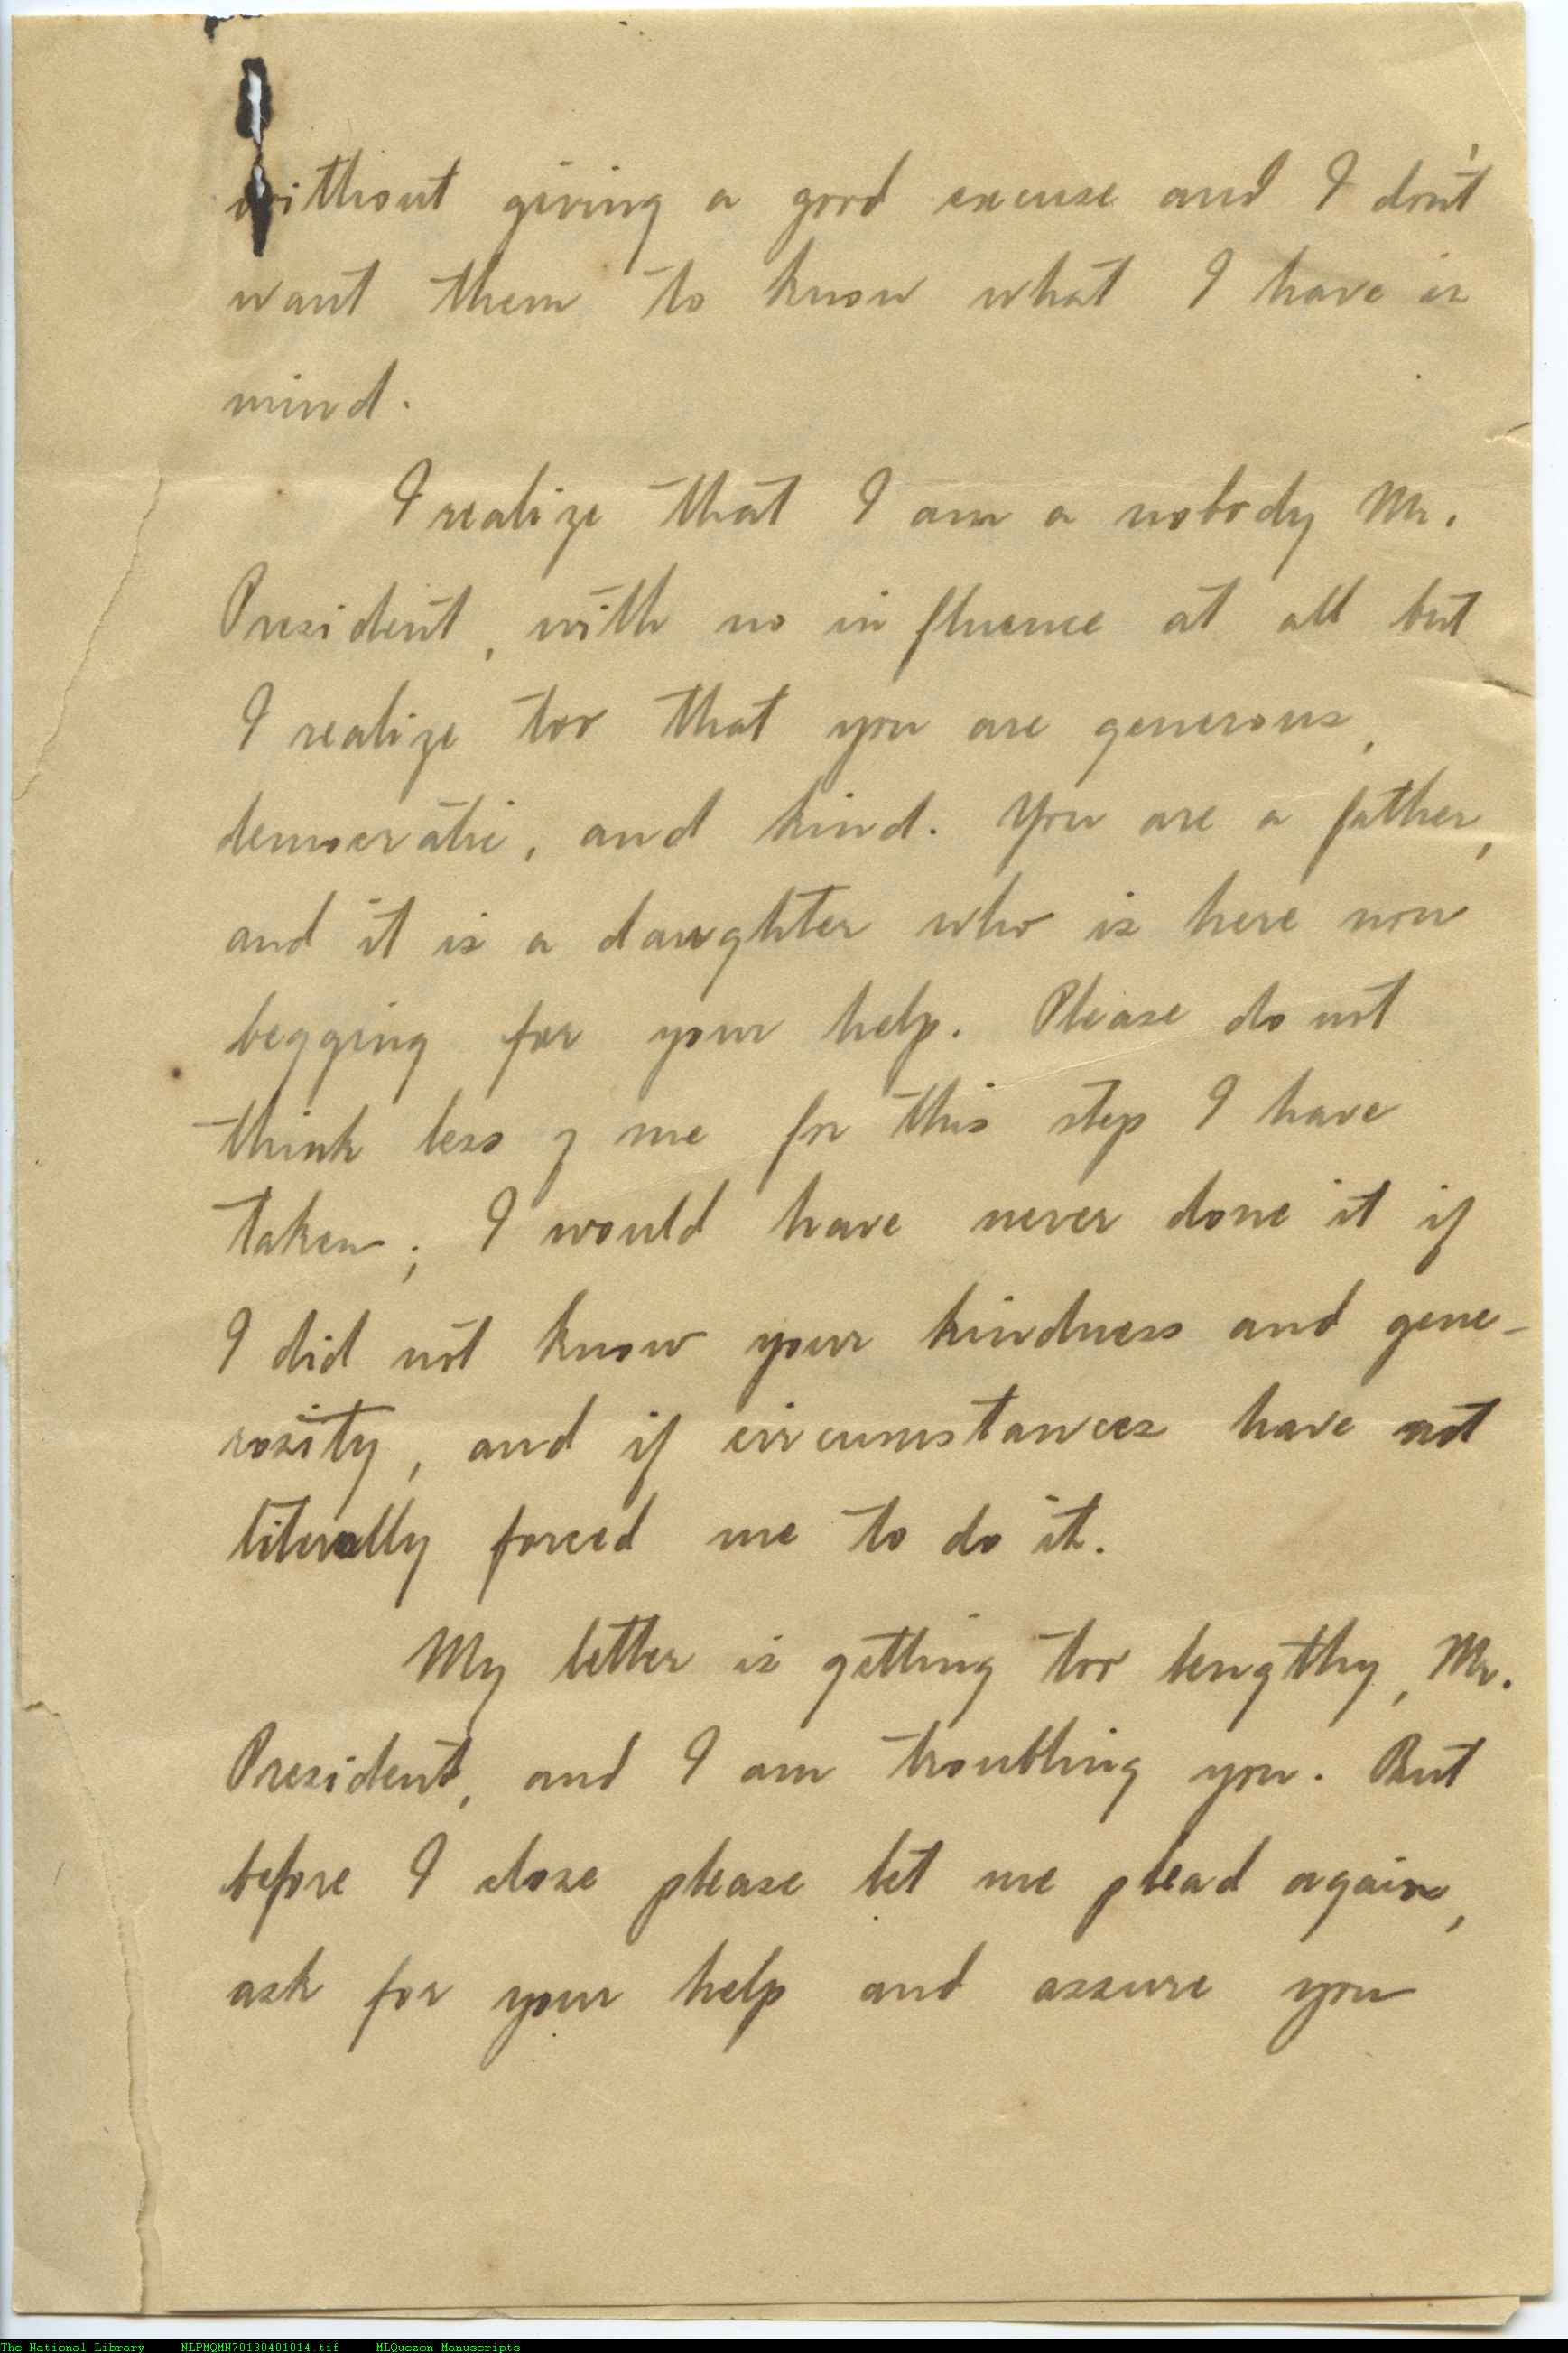 without giving a good excuse and I don't
want them to know what I have in
mind.
I realize that I am a nobody Mr.
President, with no influence at all but
I realize too that you are generous,
democratic, and kind. You are a father,
and it is a daughter who is here now
begging for your help. Please do not
think less of me for this step I have
taken; I would have never done it if
I did not know your kindness and gene-
rosity, and if circumstances have not
literally forced me to do it.
My letter is getting too lengthy, Mr.
President, and I am troubling you. But
before I close please let me plead again,
ask for your help and assure you
The National Library NLPMQMN70130401014.tif MLQuezon Manuscripts